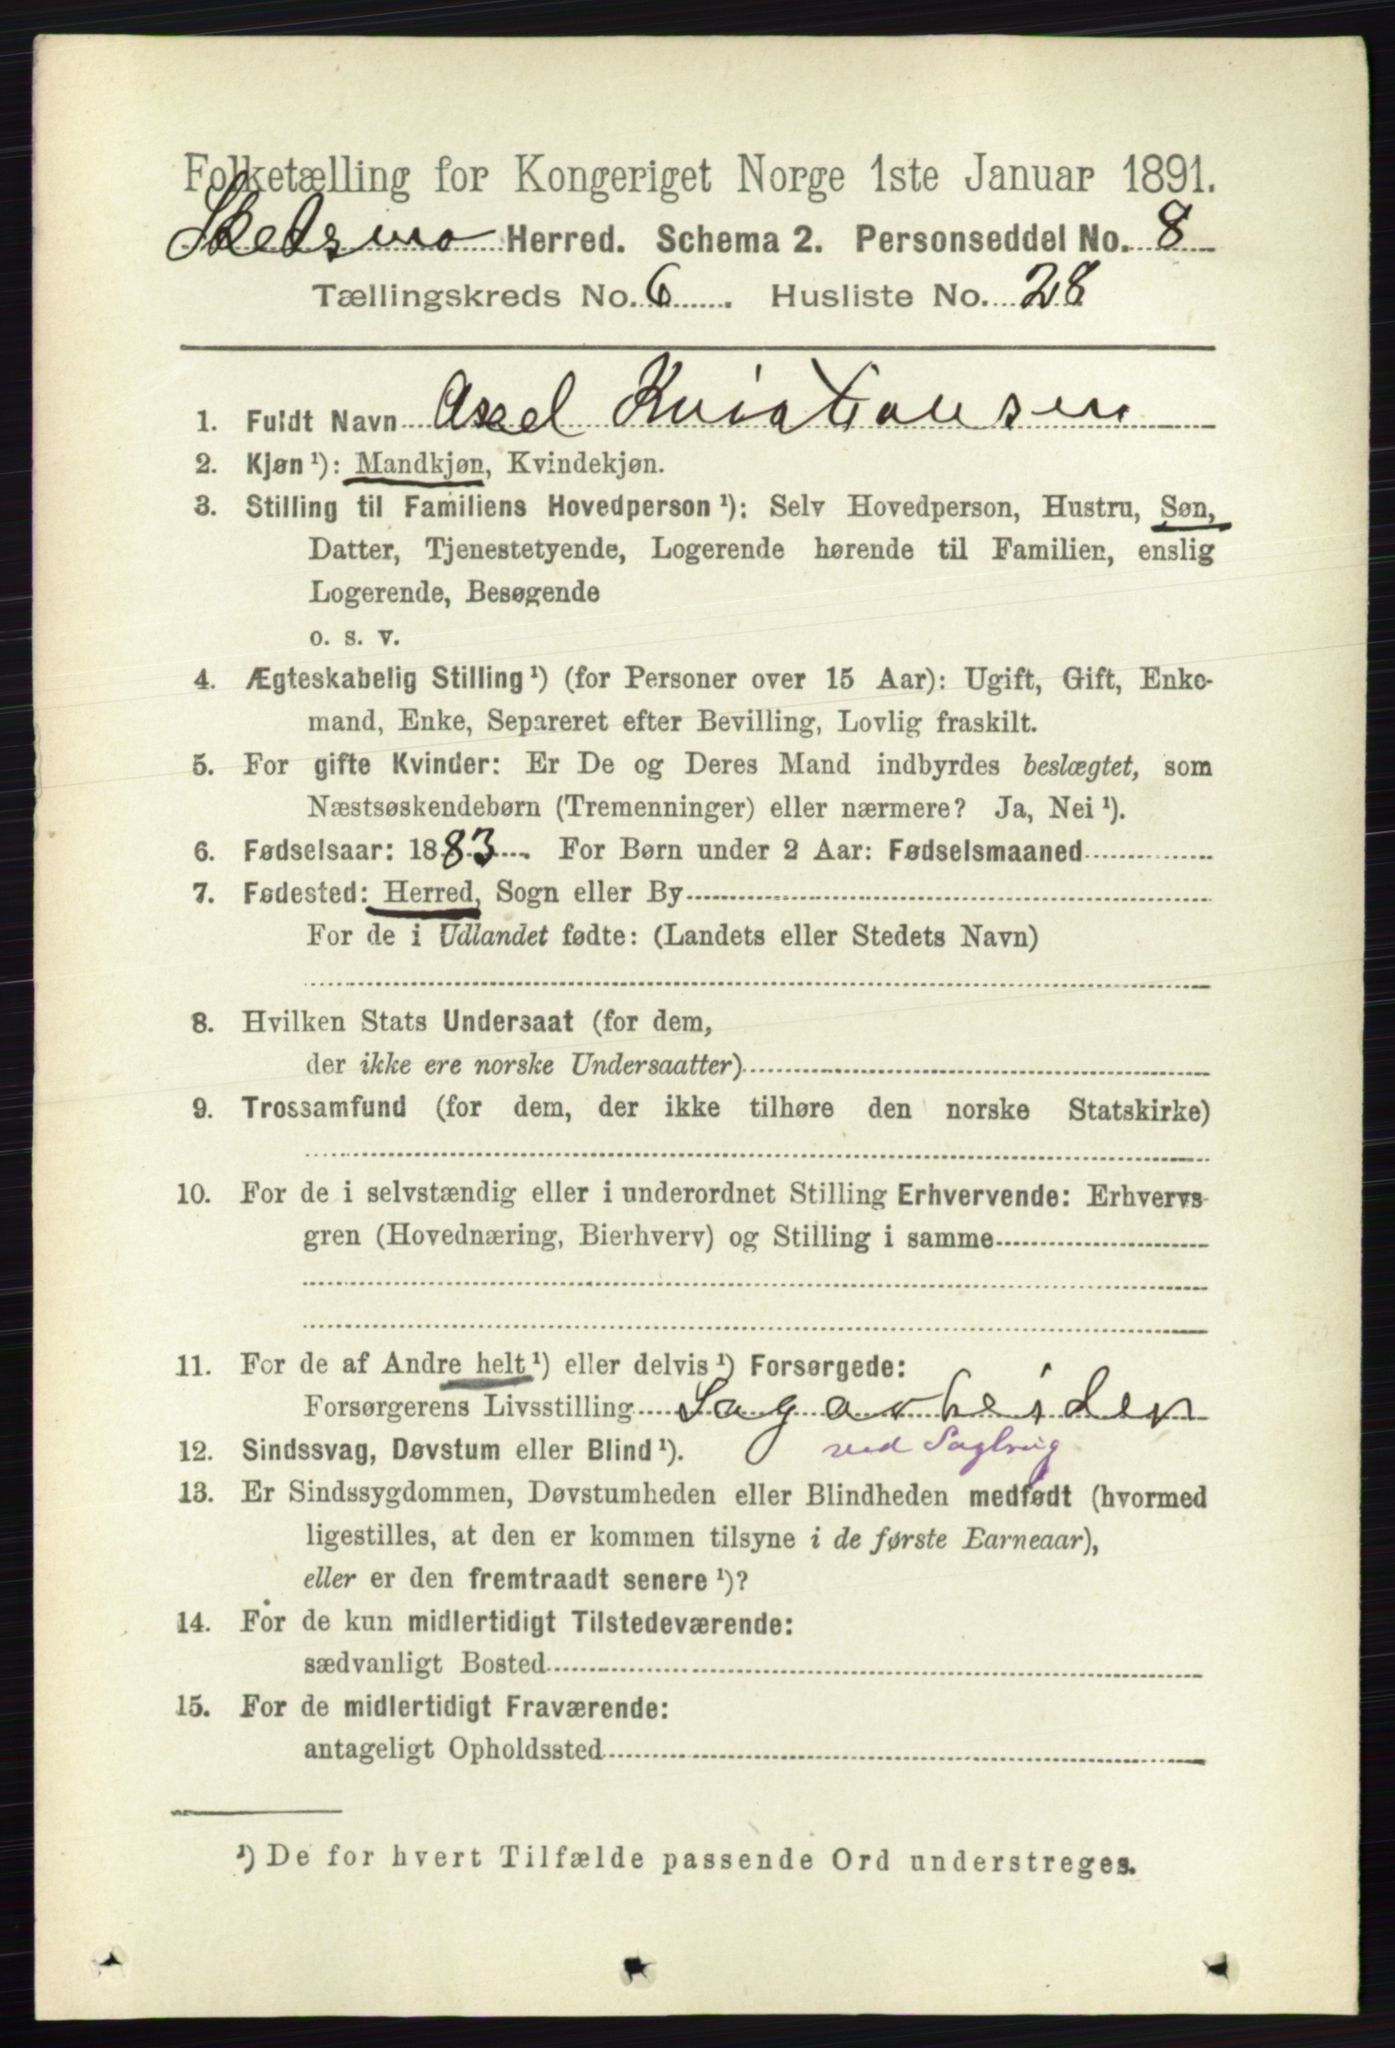 Folketælling for Kongeriget Norge 1ste Januar 1891.
Skedsmo Herred. Schema 2. Personseddel No. 8
Tællingskreds No. 6. Husliste No. 28
1. Fuldt Navn Axel Kristiansen
2. Kjøn ¹): Mandkjøn, Kvindekjøn.
3. Stilling til Familiens Hovedperson ¹): Selv Hovedperson, Hustru, Søn,
Datter, Tjenestetyende, Logerende hørende til Familien, enslig
Logerende, Besøgende
o. s. v.
4. Ægteskabelig Stilling ¹) (for Personer over 15 Aar): Ugift, Gift, Enke-
mand, Enke, Separeret efter Bevilling, Lovlig fraskilt.
5. For gifte Kvinder: Er De og Deres Mand indbyrdes beslægtet, som
Næstsøskendebørn (Tremenninger) eller nærmere? Ja, Nei ¹).
6. Fødselsaar: 1883. For Børn under 2 Aar: Fødselsmaaned
7. Fødested: Herred, Sogn eller By
For de i Udlandet fødte: (Landets eller Stedets Navn)
8. Hvilken Stats Undersaat (for dem,
der ikke ere norske Undersaatter)
9. Trossamfund (for dem, der ikke tilhøre den norske Statskirke)
10. For de i selvstændig eller i underordnet Stilling Erhvervende: Erhvervs-
gren (Hovednæring, Bierhverv) og Stilling i samme
11. For de af Andre helt ¹) eller delvis ¹) Forsørgede:
Forsørgerens Livsstilling Sagarbeider
12. Sindssvag, Døvstum eller Blind ¹). ved Sagbrug
13. Er Sindssygdommen, Døvstumheden eller Blindheden medfødt (hvormed
ligestilles, at den er kommen tilsyne i de første Barneaar),
eller er den fremtraadt senere ¹)?
14. For de kun midlertidigt Tilstedeværende:
sædvanligt Bosted
15. For de midlertidigt Fraværende:
antageligt Opholdssted
¹) De for hvert Tilfælde passende Ord understreges.